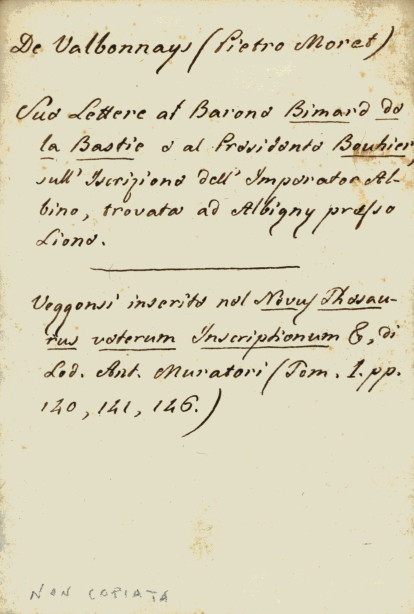 De Valbonnays (Pietro Moret)
Sue Lettere al Barone Bimard de
la Bastie e al Presidente Bouhier,
sull' Iscrizione dell' Imperator Al-
bino, trovata ad Albigny presso
Lione.
Veggonsi inserite nel Novus Thesau-
rus veterum Inscriptionum &, di
Lod. Ant. Muratori (Tom. 1. pp.
140, 141, 146.)
NON COPIATA